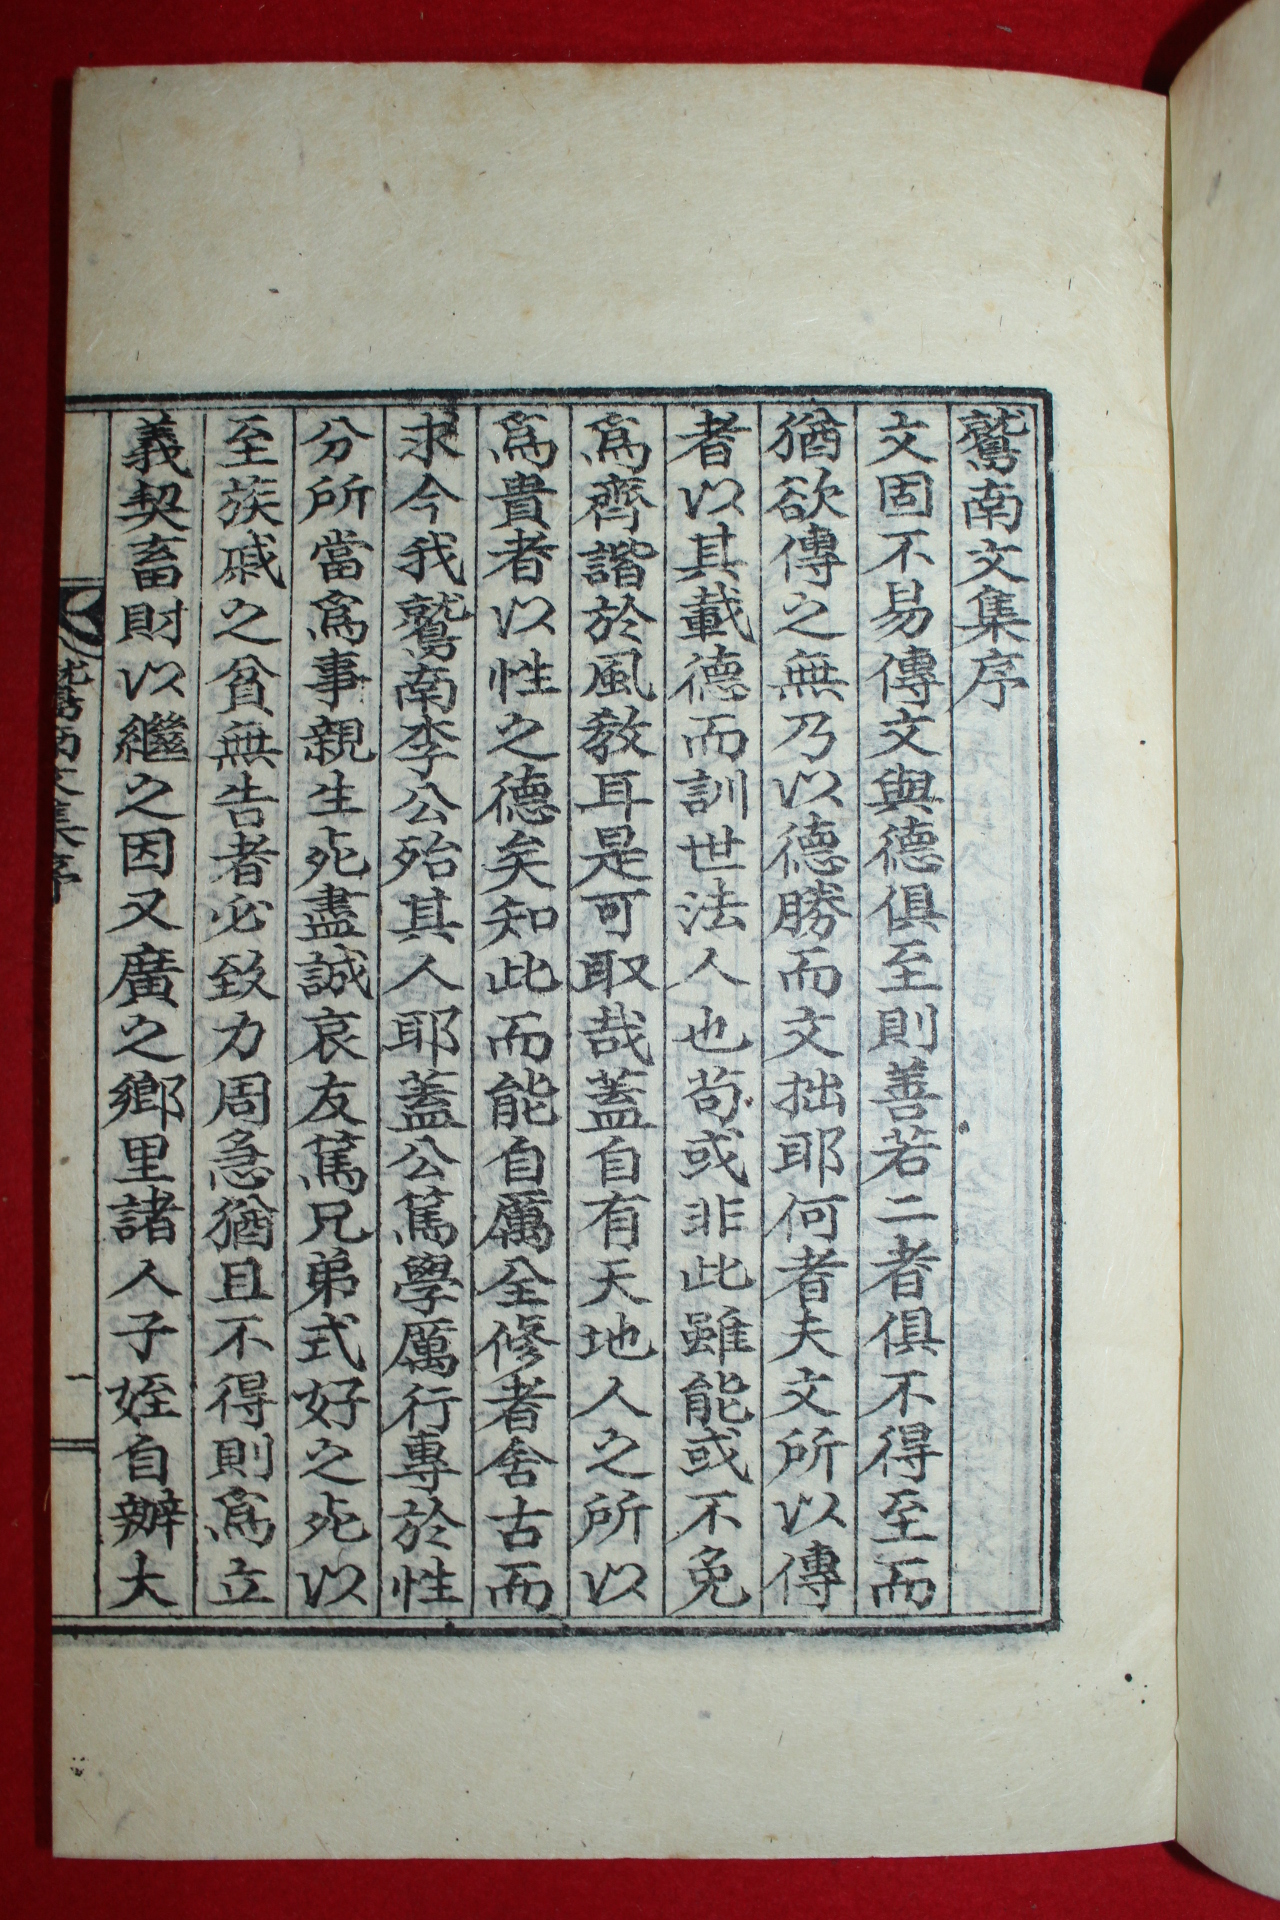 鷲南文集序
文固不易傳文與德俱至則善若二者俱不得至而
猶欲傳之無乃以德勝而文拙耶何者夫文所以傳
者以其載德而訓世法人也苟或非此雖能或不免
爲齊諧於風教耳是可取哉蓋自有天地人之所以
爲貴者以性之德矣知此而能自厲全修者舍古而
求今我鷲南李公殆其人耶蓋公篤學厲行專於性
分所當爲事親生死盡誠哀友篤兄弟式好之死以
至族戚之貧無告者必致力周急猶且不得則爲立
義契畜財以繼之因又廣之鄉里諸人子姪自辦大
鷲南文集序
一